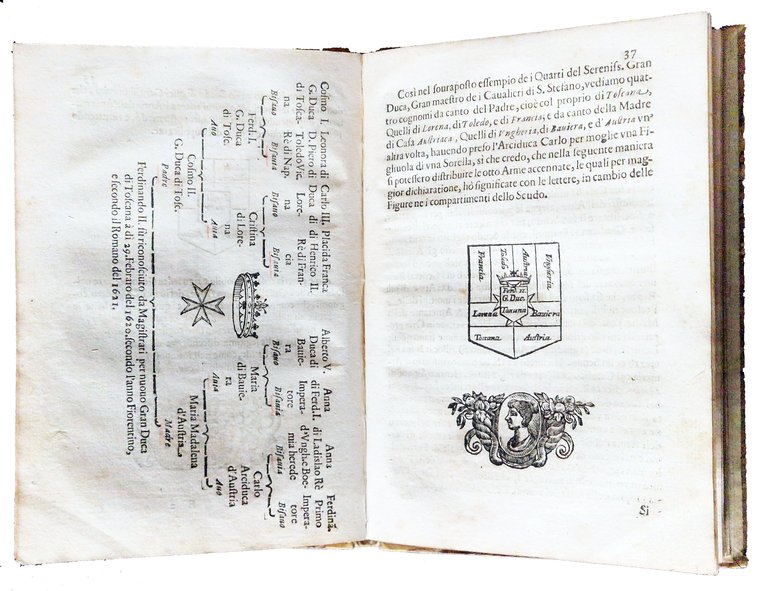 Cosmo I. Leonora di Carlo III. Placida Franca Alberto V. Anna Anna Ferdina.
G. Duca D. Piero di Duca di di Henrico II. Duca di di Ferd.I. di Ladislao Rè Primo
di Tosca- Toledo Vic. Lore- Rè di Fran- Bauie- Impera- d'Vngh.e Boe- Impera-
na Rè di Nap. na cia ra tore mia herede tore
Bisauo Bisauia Bisauo Bisauia Bisauo Bisauia Bisauia Bisauo
Ferd. I. Cristina Maria Carlo
G. Duca di Lore- di Bauie- Arciduca
di Tosc. na ra d'Austria
Auo Auia Auia Auo
Cosmo II. Maria Madalena
G. Duca di Tosc. d'Austria
Padre Madre
Ferdinando II. fù riconosciuto da Magistrati per nuouo Gran Duca
di Toscana à di 29. Febraro del 1620. secondo l'anno Fiorentino,
e secondo il Romano del 1621.
37
Così nel souraposto essempio de i Quarti del Sereniss. Gran
Duca, Gran maestro de i Caualieri di S. Stefano, vediamo quat-
tro cognomi da canto del Padre, cioè col proprio di Toscana,
Quelli di Lorena, di Toledo, e di Francia; e da canto della Madre
di Casa Austriaca, Quelli di Vngheria, di Bauiera, e d'Austria vn'
altra volta, hauendo preso l'Arciduca Carlo per moglie vna Fi-
ghuola di vna Sorella, si che credo, che nella seguente maniera
si potessero distribuire le otto Arme accennate, le quali per mag-
gior dichiaratione, hò significate con le lettere, in cambio delle
Figure ne i compartimenti dello Scudo.
Francia Toledo Austria Vngheria
Ferd. II.
G. Duc.
Lorena Toscana Bauiera
Toscana Austria
Si